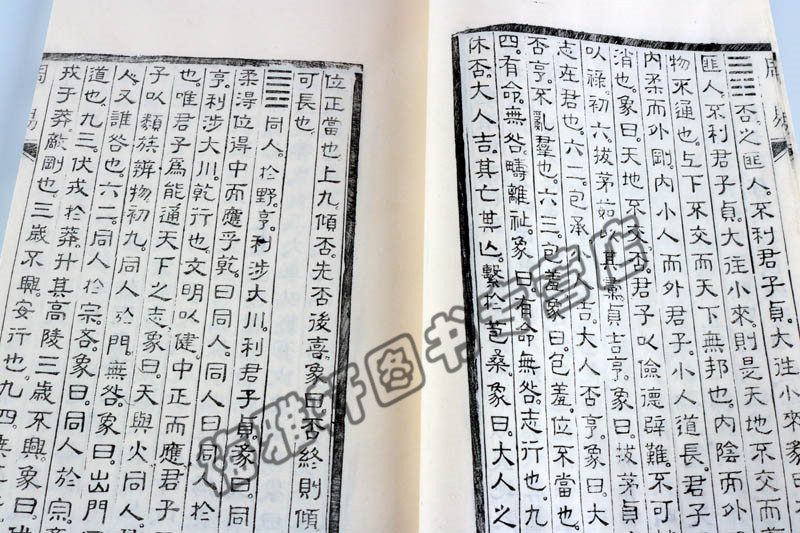 周易
䷋否之匪人。不利君子貞。大往小來彖
匪人。不利君子貞。大往小來。則是天地不交而
物不通也。上下不交而天下無邦也。內陰而外
內柔而外剛。內小人而外君子。小人道長。君子
消也。象曰。天地不交。否。君子以儉德辟難。不可
以祿。初六。拔茅茹。以其彙。貞吉亨。象曰。拔茅貞
志在君也。六二。包承。小吉。大人否亨。象曰。大
否亨。不亂羣也。六三。包羞。象曰。包羞。位不當也
四。有命。無咎。疇離祉。象曰。有命無咎。志行也。九
休否。大人吉。其亡其亡。繫於苞桑。象曰。大人之
位正當也。上九。傾否。先否後喜。象曰。否終則傾
可長也。
䷌同人。於野。亨。利涉大川。利君子貞。彖曰。同
柔得位得中而應乎乾。曰同人。同人曰同人於
亨。利涉大川。乾行也。文明以健。中正而應君子
也。唯君子為能通天下之志。象曰。天與火。同人。
子以類族辨物。初九。同人於門。無咎。象曰。出門
人。又誰咎也。六二。同人於宗。吝。象曰。同人於宗
道也。九三。伏戎於莽。升其高陵。三歲不興。象曰。伏
戎于莽。敵剛也。三歲不興。安行也。九四。
周易
雅軒图书专营店